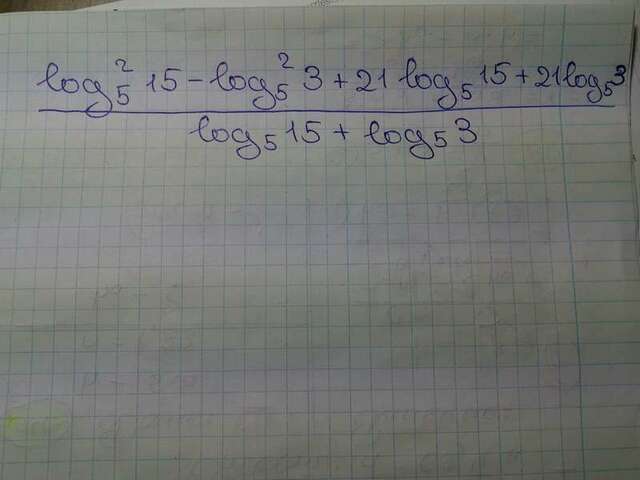 log₅² 15 - log₅² 3 + 21 log₅ 15 + 21 log₅ 3
log₅ 15 + log₅ 3